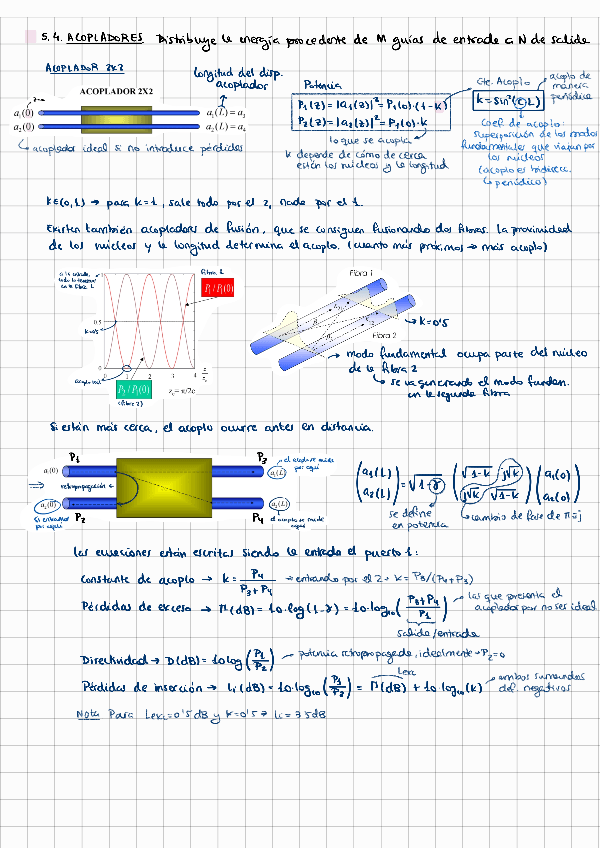 5.4. ACOPLADORES Distribuye la energía procedente de M guías de entrada a N de salida
ACOPLADOR 2x2
Longitud del disp. acoplador
ACOPLADOR 2X2
z=0
a₁(0)
a₁(L) = a₃
a₂(0)
a₂(L) = a₄
↳ acoplador ideal si no introduce pérdidas
Potencia
P₁(z) = |a₁(z)|² = P₁(0)·(1-k)
P₂(z) = |a₂(z)|² = P₁(0)·k
lo que se acopla
k depende de cómo de cerca
están los núcleos y la longitud
Cte. Acoplo
k = sin²(cL)
acoplo de
manera
periódica
Coef. de acoplo:
superposición de los modos
fundamentales que viajan por
los núcleos
(acoplo es bidirecc.
↳ periódico)
k∈(0,1) → para k=1, sale todo por el 2, nada por el 1.
Existen también acopladores de fusión, que se consiguen fusionando dos fibras. La proximidad
de los núcleos y la longitud determina el acoplo. (cuanto más próximos → más acoplo)
fibra 1
P₁ / P₁(0)
1
0.5
0
k=0'5
0 1 2 3 4
acoplo total
P₂ / P₁(0)
(fibra 2)
z_c = π/2c
Fibra 1
Fibra 2
→ k=0'5
→ modo fundamental ocupa parte del núcleo
de la fibra 2
↳ se va generando el modo fundam.
en la segunda fibra
Si están más cerca, el acoplo ocurre antes en distancia.
P₁
P₃
a₁(0)
a₁(L)
retropropagación
a₂(0)
a₂(L)
P₂
P₄
Si entramos
por aquí
(a₁(L) a₂(L)) = √1-γ (√1-k j√k j√k √1-k) (a₁(0) a₂(0))
se define
en potencia
↳ cambio de fase de
Las ecuaciones están escritas siendo la entrada el puerto 1:
Constante de acoplo → k = P₄/(P₃+P₄) → entrando por el 2 → k = P₃/(P₄+P₃)
Pérdidas de exceso → Γ(dB) = 10·log(1-γ) = 10·log₁₀((P₃+P₄)/P₁) las que presenta el
acoplador por no ser ideal
salida/entrada
Directividad → D(dB) = 10log(P₁/P₂) potencia retropropagada, idealmente → P₂=0
Pérdidas de inserción → Li(dB) = 10·log₁₀(P₃/P₁) = Γ(dB) + 10log₁₀(k) ambos sumandos
def. negativos
Lexc
Nota Para Lexc=0'5dB y k=0'5 → Li = 3'5dB